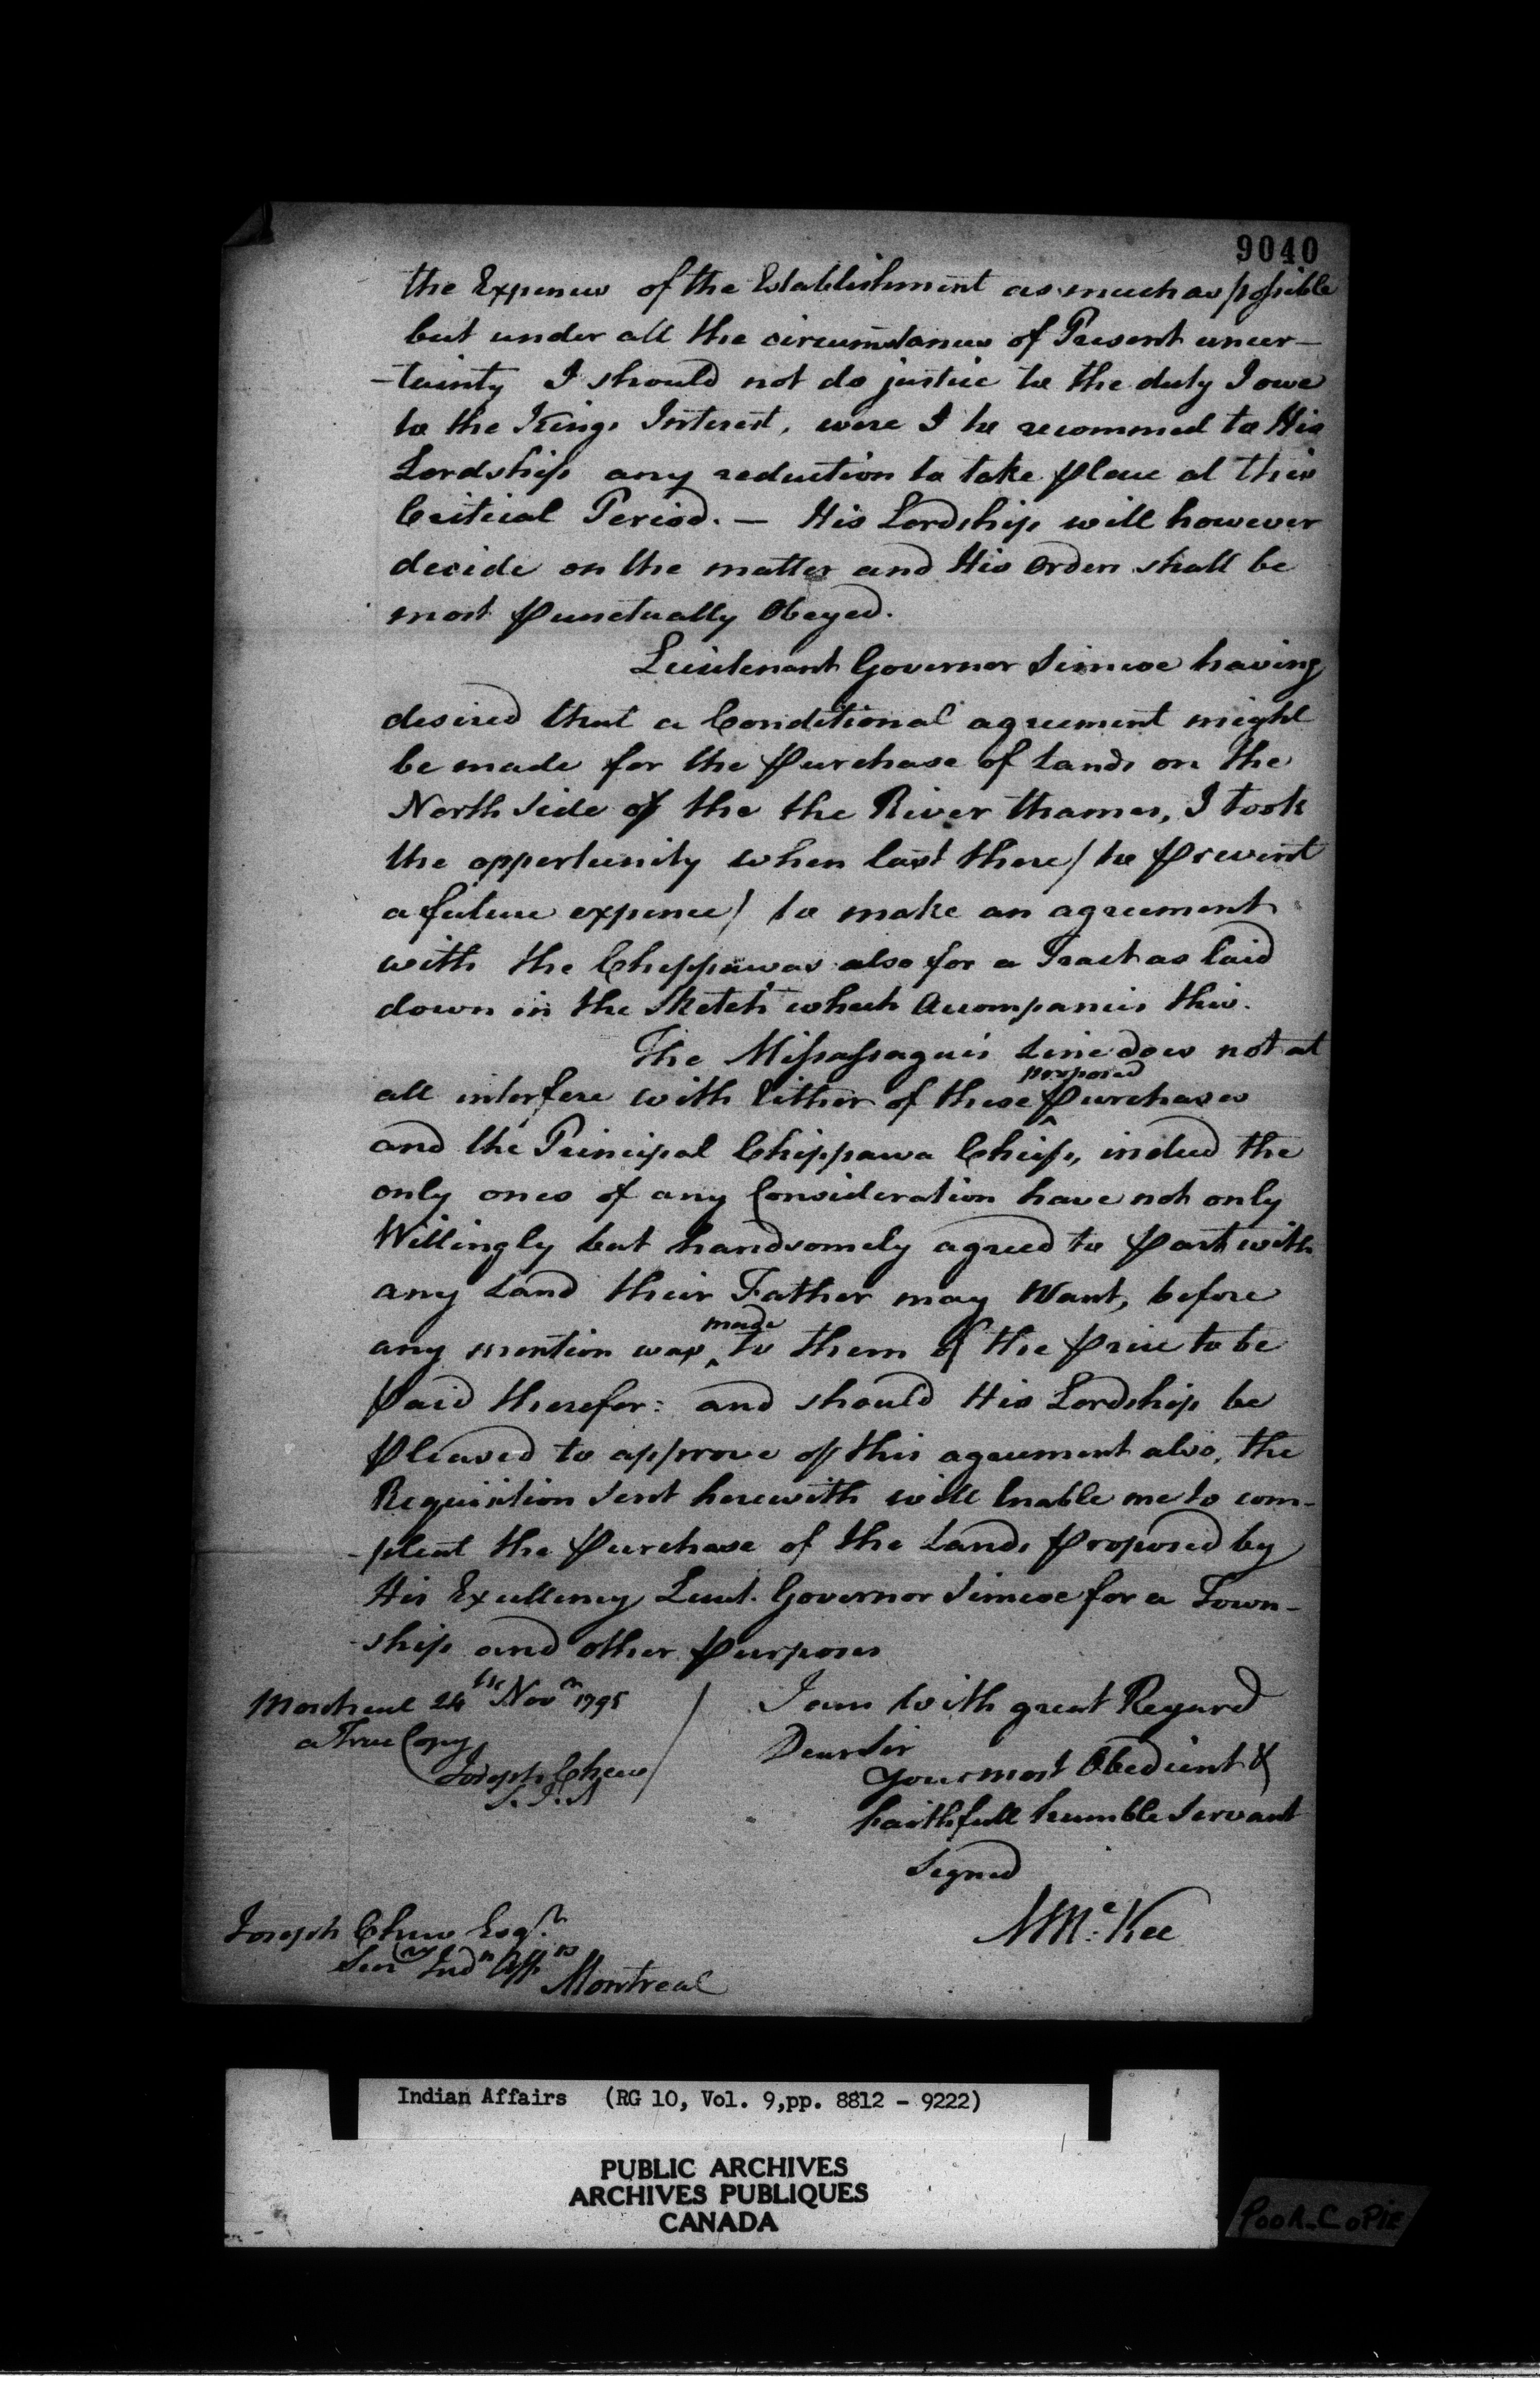 9040
the Expences of the Establishment as much as possible
but under all the circumstances of Present uncer-
-tainty I should not do justice to the duty I owe
to the Kings Interest, were I to recommed to His
Lordship any reduction to take place at this
Critical Period. — His Lordship will however
decide on the matter and His Orders shall be
most punctually Obeyed.
Lieutenant Governor Simcoe having
desired that a Conditional agreement might
be made for the purchase of Lands on the
North Side of the the River thames, I took
the oppertunity when last there / to prevent
a future expence / to make an agreement
with the Chippawas also for a Tract as laid
down in the Sketch which Accompanies this.
The Missassagues Line does not at
all interfere with Either of these proposed purchases
and the Principal Chippawa Chiefs, indeed the
only ones of any Consideration have not only
Willingly but handsomely agreed to part with
any Land their Father may Want, before
any mention was made to them of the price to be
paid therefor: and should His Lordship be
pleased to approve of this agreement also, the
Requisition Sent herewith will Enable me to com-
-pleat the purchase of the Lands proposed by
His Excellency Lieut. Governor Simcoe for a Town-
-ship and other purposes
I am with great Regard
Dear Sir
your most Obedient &
faithfull humble Servant
Signed
A McKee
Montreal 24th Novr 1795
a True Copy
Joseph Chew
S. I. A
Joseph Chew Esqr.
Secry Indn Affrs
Montreal
Indian Affairs (RG 10, Vol. 9,pp. 8812 - 9222)
PUBLIC ARCHIVES
ARCHIVES PUBLIQUES
CANADA
Poor Copie